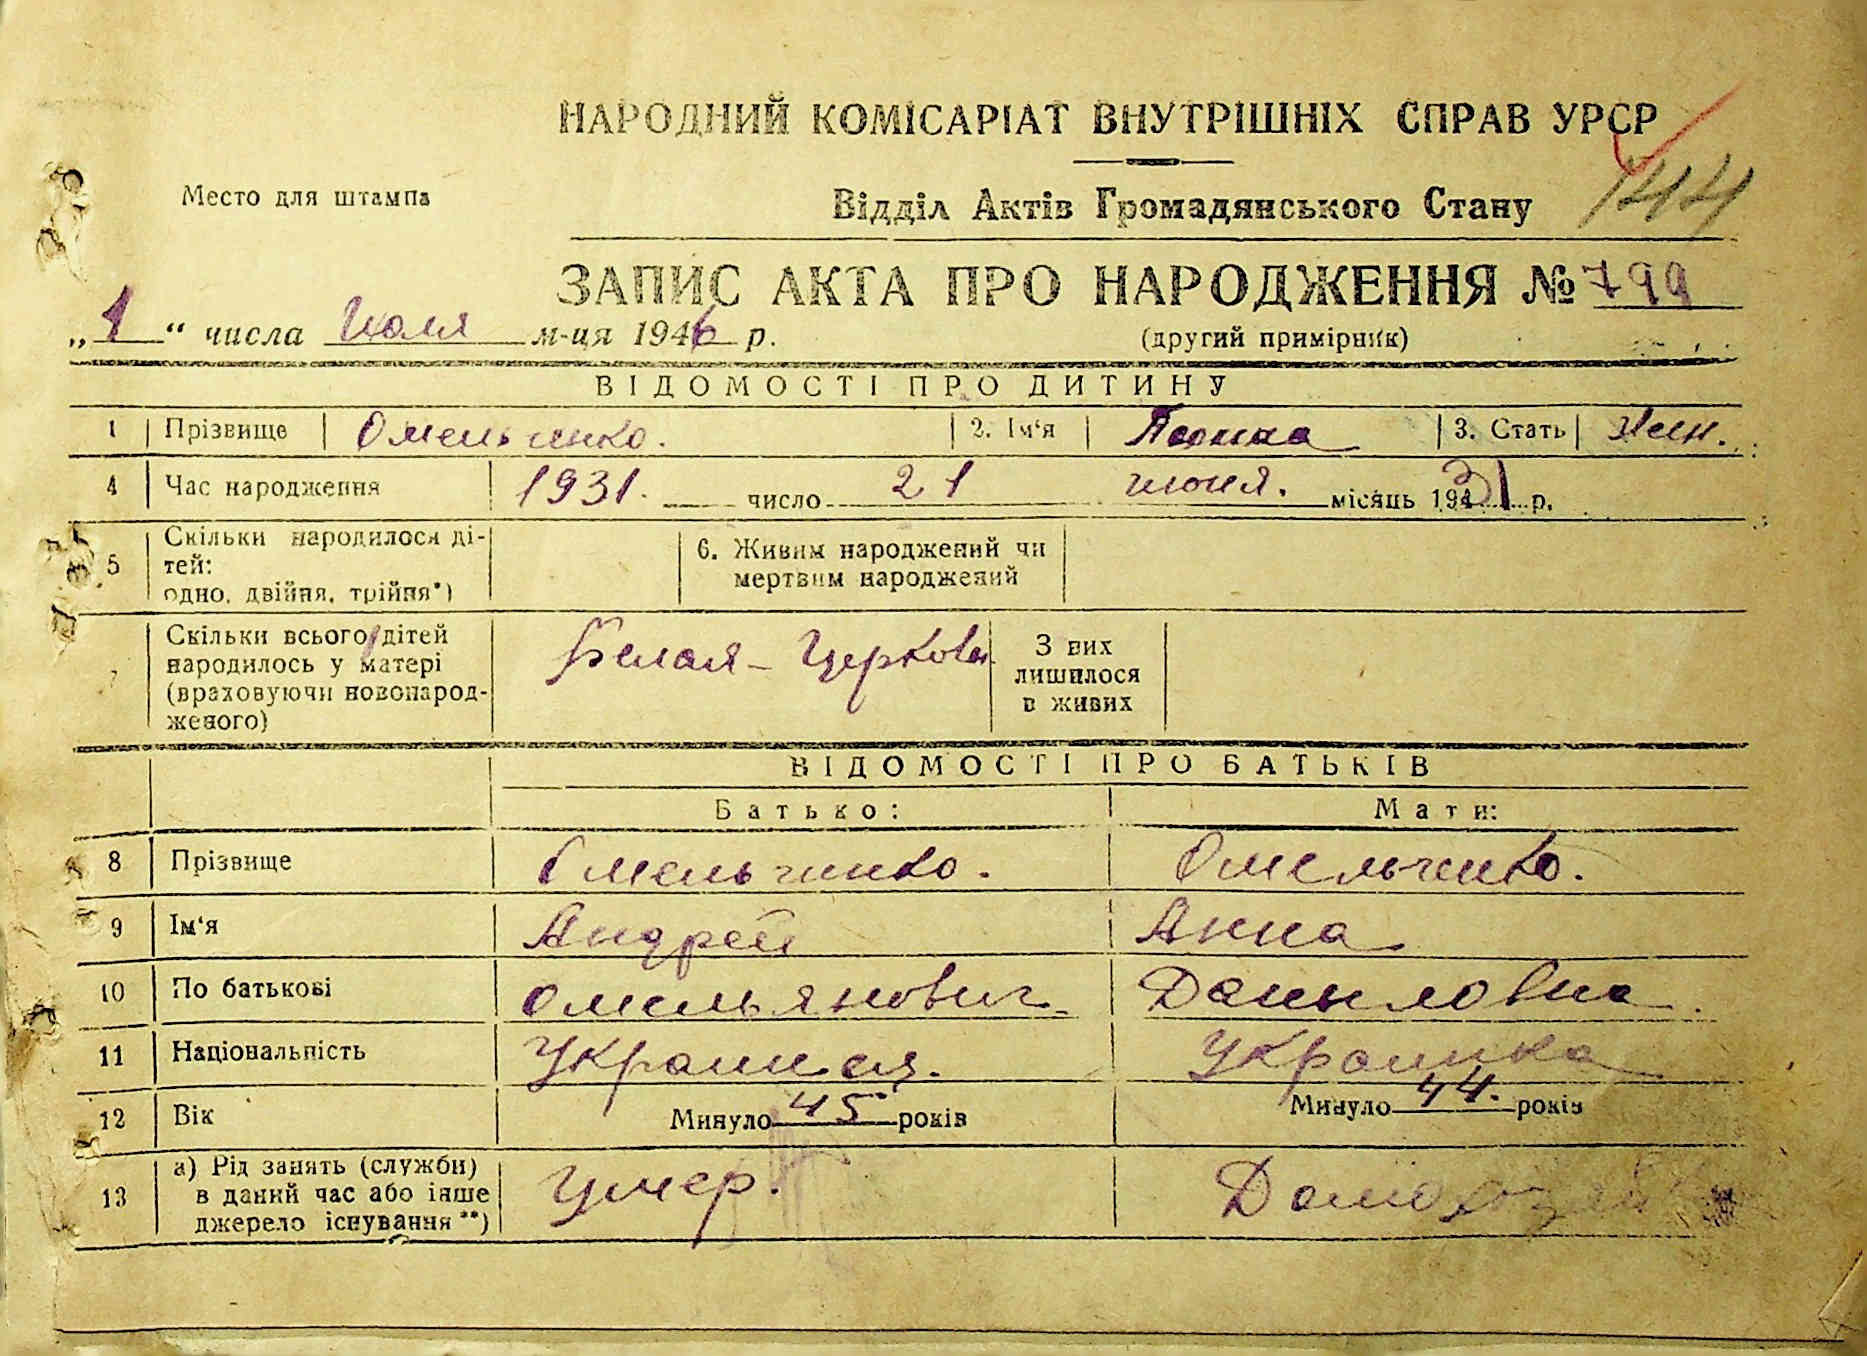 НАРОДНИЙ КОМІСАРІАТ ВНУТРІШНІХ СПРАВ УРСР
144
Место для штампа
Відділ Актів Громадянського Стану
ЗАПИС АКТА ПРО НАРОДЖЕННЯ № 799
„1“ числа Июля м-ця 1946 р.
(другий примірник)
ВІДОМОСТІ ПРО ДИТИНУ
1 Прізвище Омельченко. 2. Ім‘я 3. Стать Жен.
4 Час народження 1931. число 21 июня. місяць 1931 р.
5 Скільки народилося ді-
тей:
одно, двійня, трійня*)
6. Живим народжений чи
мертвим народжений
7 Скільки всього дітей
народилось у матері
(враховуючи новонарод-
женого)
Белая-Церковь
З них
лишилося
в живих
ВІДОМОСТІ ПРО БАТЬКІВ
Батько: Мати:
8 Прізвище Омельченко. Омельченко.
9 Ім‘я Андрей Анна
10 По батькові Омельянович Даниловна
11 Національність Украинец. Украинка
12 Вік Минуло 45 років Минуло 44. років
13 а) Рід занять (служби)
в даний час або інше
джерело існування**)
Умер. Домохозяйка